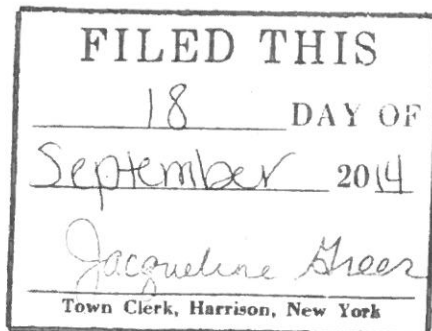 FILED THIS
18 DAY OF
September 2014
Jacqueline Greer
Town Clerk, Harrison, New York